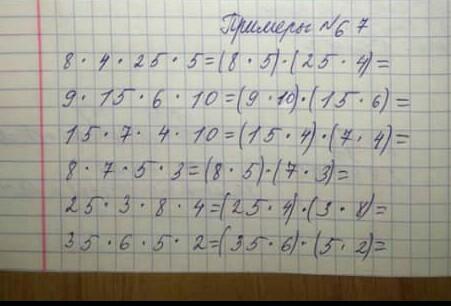 Примеры №67
8 · 4 · 25 · 5 = (8 · 5) · (25 · 4) =
9 · 15 · 6 · 10 = (9 · 10) · (15 · 6) =
15 · 7 · 4 · 10 = (15 · 4) · (7 · 4) =
8 · 7 · 5 · 3 = (8 · 5) · (7 · 3) =
25 · 3 · 8 · 4 = (25 · 4) · (3 · 8) =
35 · 6 · 5 · 2 = (35 · 6) · (5 · 2) =